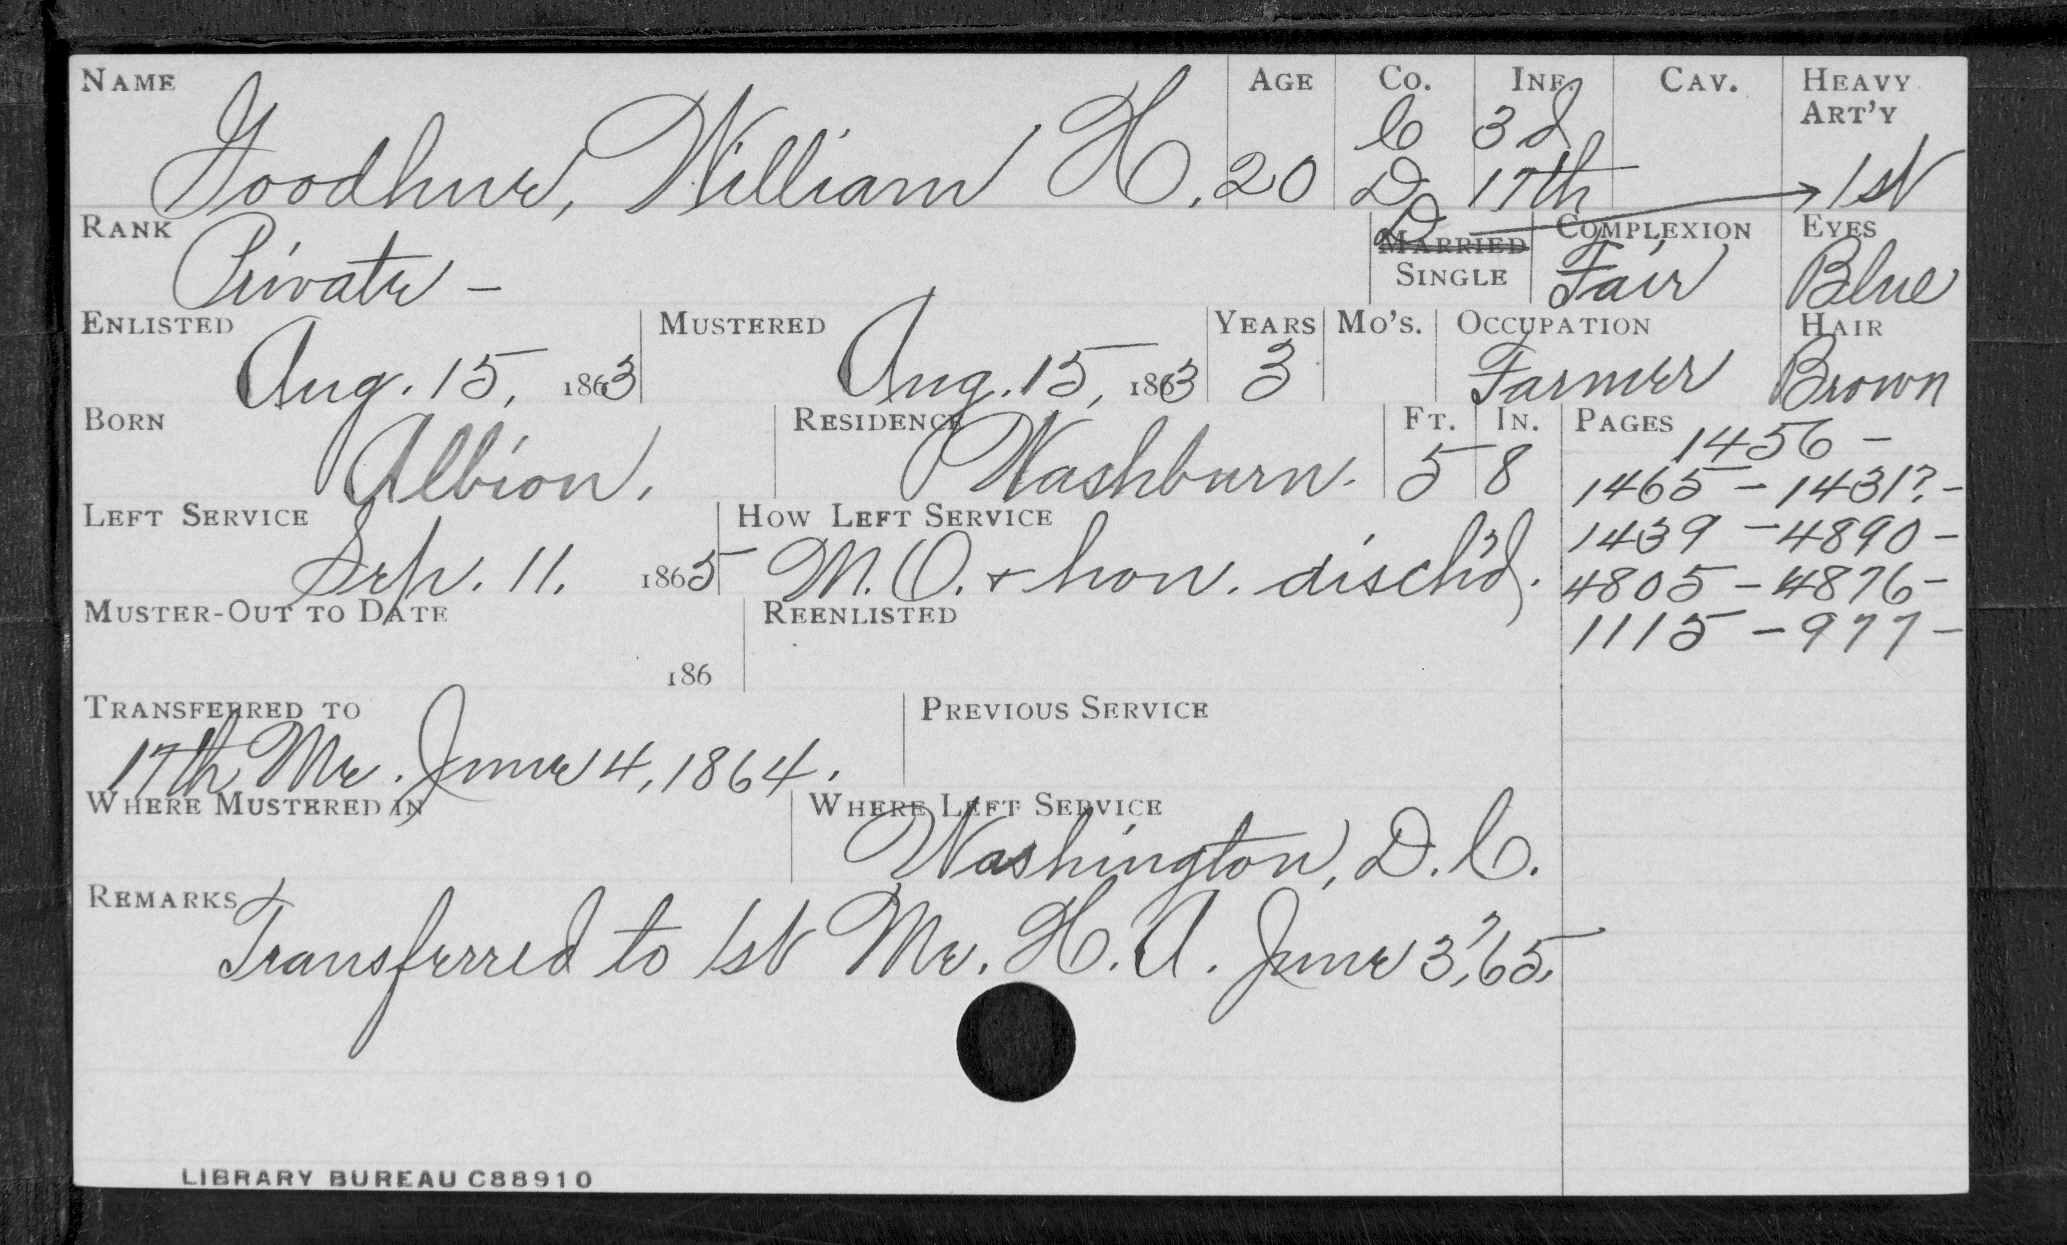 NAME AGE CO. INF. CAV. HEAVY ART'Y
C 3d
Goodhue, William H. 20 D 17th
D → 1st
RANK MARRIED SINGLE COMPLEXION EYES
Private - Fair Blue
ENLISTED MUSTERED YEARS MO'S. OCCUPATION HAIR
Aug. 15, 1863 Aug. 15, 1863 3 Farmer Brown
BORN RESIDENCE FT. IN. PAGES
Albion. Washburn. 5 8 1456 -
1465 - 1431? -
LEFT SERVICE HOW LEFT SERVICE
Sep. 11. 1865 M. O. & hon. disch'd.
1439 - 4890 -
4805 - 4876 -
MUSTER-OUT TO DATE REENLISTED
1115 - 977 -
186
TRANSFERRED TO PREVIOUS SERVICE
17th Me. June 4, 1864.
WHERE MUSTERED IN WHERE LEFT SERVICE
Washington, D. C.
REMARKS
Transferred to 1st Me. H. A. June 3, '65.
LIBRARY BUREAU C88910